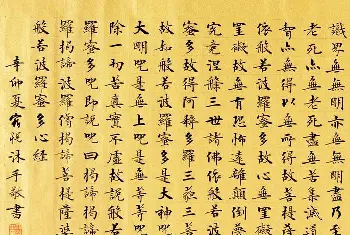 識界無無明亦無無明盡乃至
老死亦無老死盡無苦集滅道
智亦無得以無所得故菩提薩
依般若波羅蜜多故心無罣礙
罣礙故無有恐怖遠離顛倒夢
究竟涅槃三世諸佛依般若波
蜜多故得阿耨多羅三藐三菩
故知般若波羅蜜多是大神咒
大明咒是無上咒是無等等咒
除一切苦真實不虛故說般若
羅蜜多咒即說咒曰揭諦揭諦
羅揭諦波羅僧揭諦菩提薩婆
般若波羅蜜多心經
辛卯夏宮悅沐手敬書